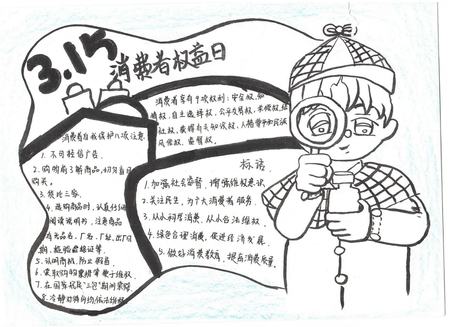 3.15
消费者权益日
消费者自我保护八项注意
1.不可轻信广告.
2.购物前了解商品,切勿盲目
购买.
3.货比三家.
4.选购商品时,认真仔细
阅读说明书,注意商品
有无品名、厂名、厂址、出厂日
期、检验合格证等.
5.认明商标,防止假冒.
6.索取购物票据等
7.在国家规定"三包"期
8.冷静对待
消费者享有九项权利:安全权、知
情权、自主选择权、公平交易权、求偿权、结
社权、获得有关知识权、人格尊严和民族
风俗权、监督权.
标语
1.加强社会监督,增强维权意识.
2.关注民生,为广大消费者服务.
3.从小科学消费,从小合法维权.
4.绿色合理消费,促进经济发展.
5.做好消费教育,提高消费质量.